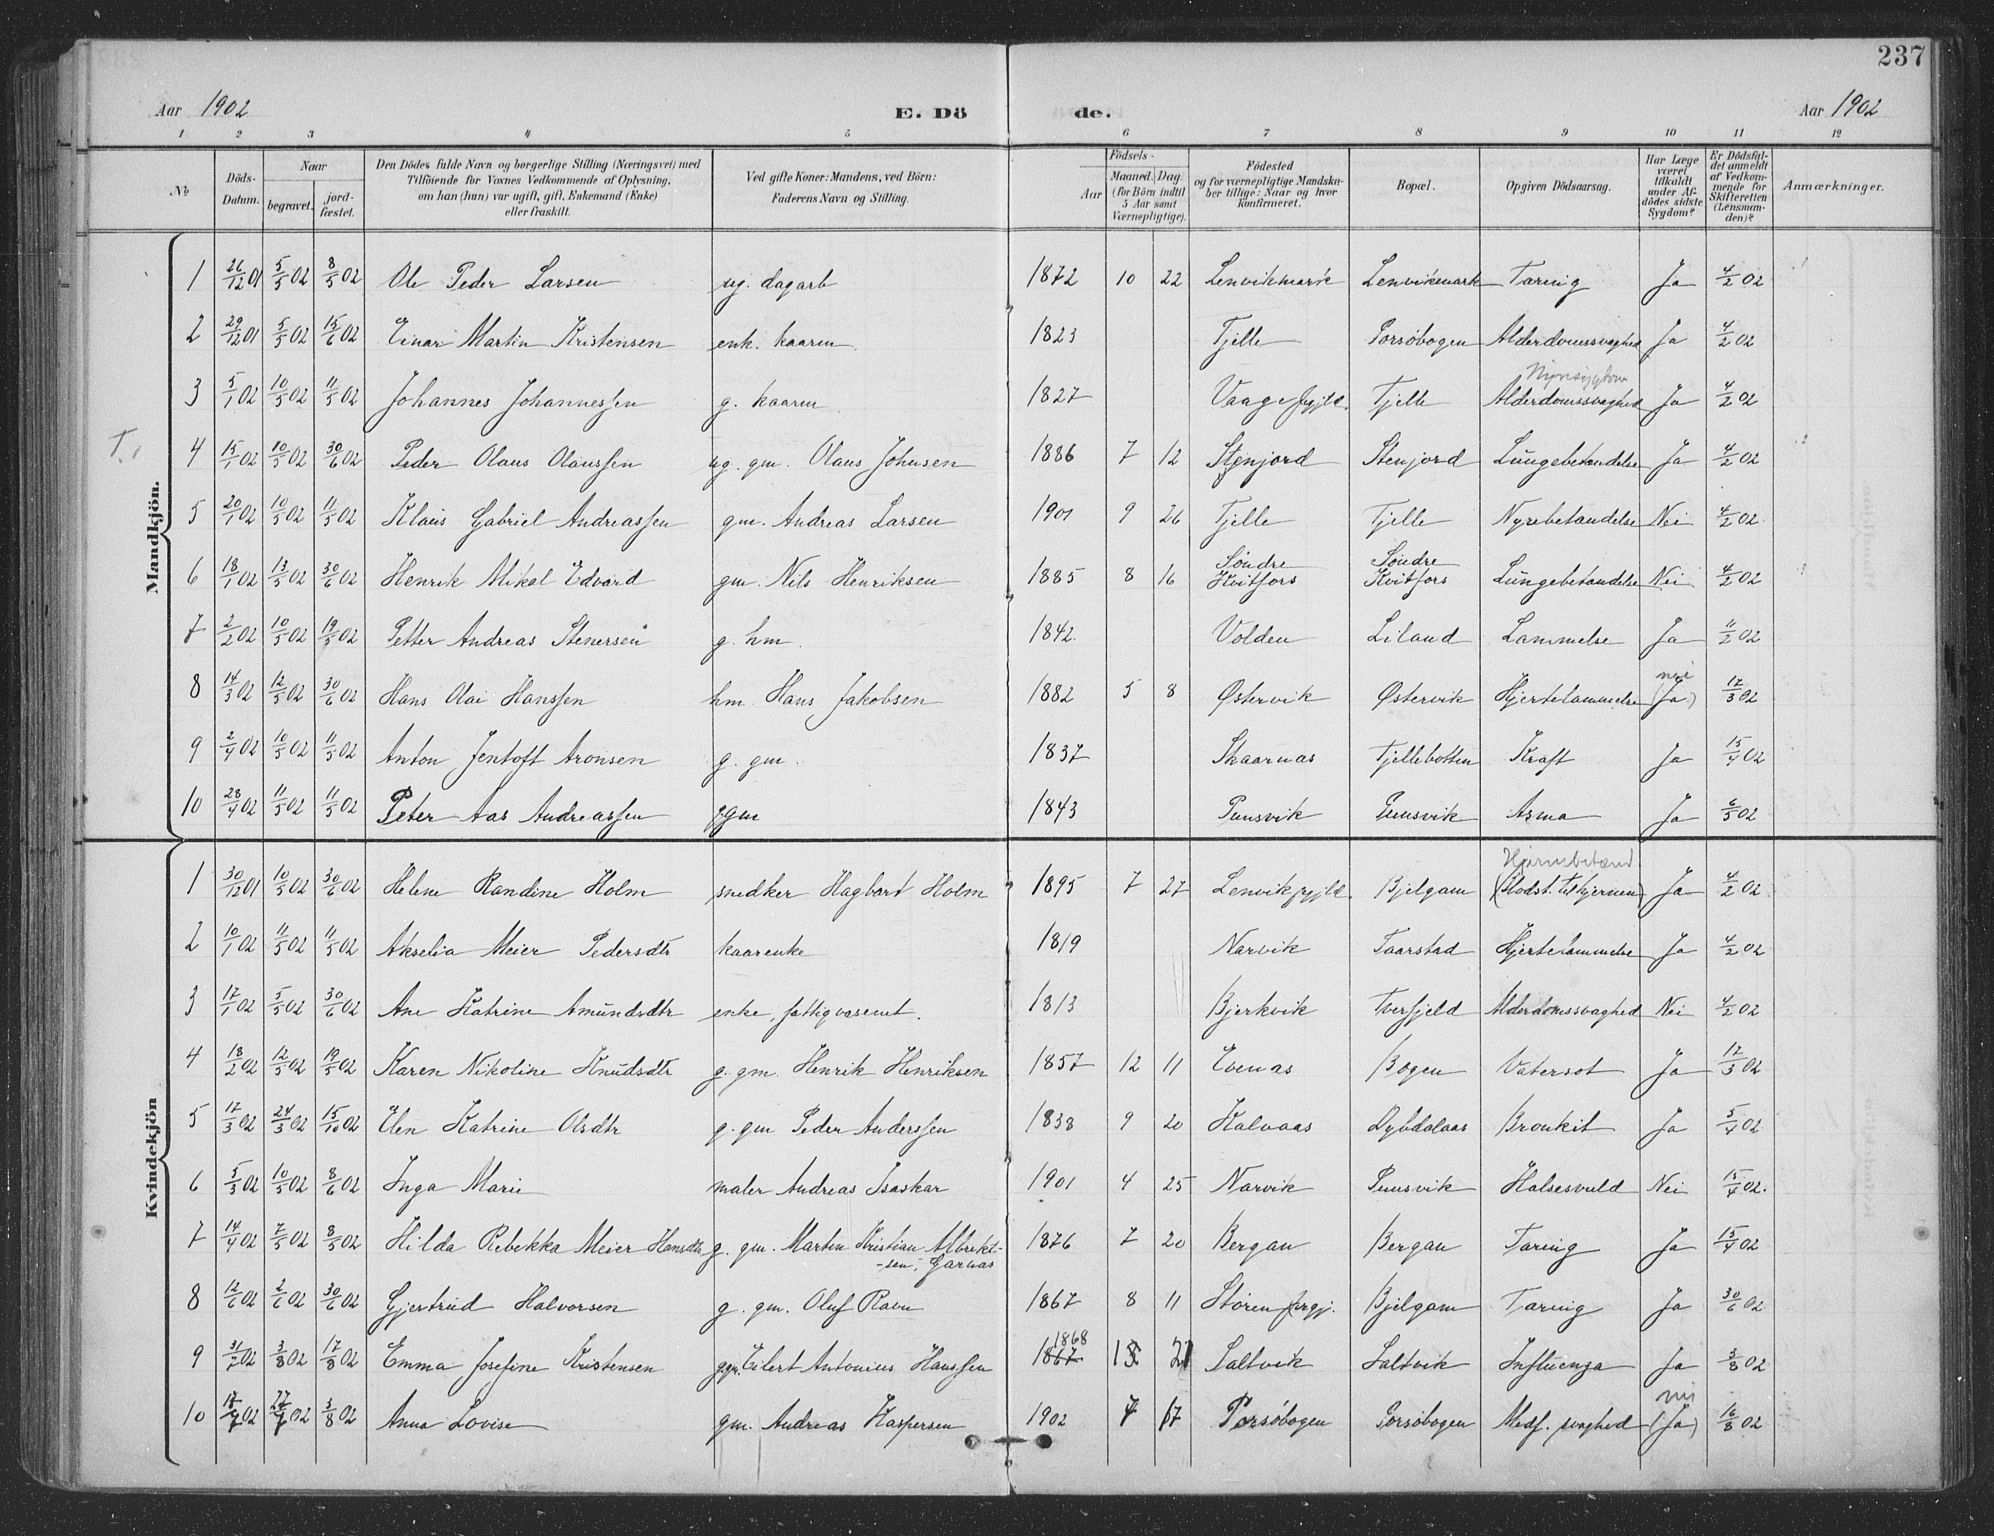 237
Aar 1902 E. Dö de. Aar 1902
1 2 3 4 5 6 7 8 9 10 11 12
No. Döds-Datum. Naar begravet. jord-fæstet. Den Dödes fulde Navn og borgerlige Stilling (Næringsvei) med Tilföiende for Voxnes Vedkommende af Oplysning, om han (hun) var ugift, gift, Enkemand (Enke) eller fraskilt. Ved gifte Koner: Mandens, ved Börn: Faderens Navn og Stilling. Födsels- Aar Maaned. Dag (for Börn indtil 5 Aar samt Værnepligtige). Födested og for værnepligtige Mandskaber tillige: Naar og hvor konfirmeret. Bopæl. Opgiven Dödsaarsag. Har Læge været tilkaldt under Afdödes sidste Sygdom? Er Dödsfaldet anmeldt af Vedkommende for Skifteretten (Lensmanden)? Anmærkninger.
Mandkjön.
1 26/12 01 5/5 02 8/5 02 Ole Peder Larsen ug. dagarb 1872 10 22 Lenvikmark Lenvikmark Tæring Ja 4/2 02
2 29/12 01 5/5 02 15/6 02 Einar Martin Kristensen enk. kaarm. 1823 Tjelle Forsøbogen Alderdomssvaghed Ja 4/2 02
Nyresygdom
3 5/1 02 10/5 02 11/5 02 Johannes Johannessen g. kaarm 1827 Vaage prgjld. Tjelle Alderdomssvaghed Ja 4/2 02
4 15/1 02 10/5 02 30/6 02 Peder Olaus Olaussen ug. gm. Olaus Johnsen 1886 7 12 Stenjord Stenjord Lungebetændelse Ja 4/2 02
5 20/1 02 10/5 02 11/5 02 Klaus Gabriel Andreassen gm. Andreas Larsen 1901 9 26 Tjelle Tjelle Nyrebetændelse Nei 4/2 02
6 18/1 02 13/5 02 30/6 02 Henrik Mikal Edvard gm. Nils Henriksen 1885 8 16 Søndre Kvitfors Søndre Kvitfors Lungebetændelse Nei 4/2 02
7 2/2 02 10/5 02 19/5 02 Petter Andreas Stenersen g. hm. 1842. Volden Liland Lammelse Ja 11/2 02
nei
8 14/3 02 12/5 02 30/6 02 Hans Olai Hanssen hm. Hans Jakobsen 1882 5 8 Østervik Østervik Hjertelammelse (Ja) 17/3 02
9 2/4 02 10/5 02 11/5 02 Anton Jentoft Aronsen g. gm. 1837 Skaarnas Tjellebotten Kræft Ja 15/4 02
10 28/4 02 11/5 02 11/5 02 Peter Aas Andreassen g gm 1843 Punsvik Punsvik Asma Ja 6/5 02
Kvindekjön
Hjernebetænd
1 30/12 01 10/5 02 30/6 02 Helene Randine Holm snedker Hagbart Holm 1895 7 27 Lenvik prgjld. Bjelgam (Blodst. til hjernen) Ja 4/2 02
2 10/1 02 11/5 02 11/5 02 Akselia Meier Pedersdtr kaarenke 1819 Narvik Taarstad Hjertelammelse Ja 4/2 02
3 17/1 02 5/5 02 30/6 02 Ane Katrine Amundsdtr enke, fattigvæsenet. 1813 Bjerkvik Tverfjeld Alderdomssvaghed Nei 4/2 02
4 18/2 02 12/5 02 19/5 02 Karen Nikoline Knudsdtr g. gm. Henrik Henriksen 1857 12 11 Evenas Bogen Vatersot Ja 12/3 02
5 17/3 02 24/5 02 15/10 02 Elen Katrine Olsdtr g. gm Peder Anderssen 1838 9 20 Kalvaas Dybdalaas Bronkit Ja 5/4 02
6 5/3 02 10/5 02 8/6 02 Inga Marie maler Andreas Isaskar 1901 4 25 Narvik Punsvik Halsesvuld Nei 15/4 02.
7 14/4 02 7/5 02 8/5 02 Hilda Rebekka Meier Hansdtr g. gm. Martin Kristian Albrekt-
-sen, Garnas 1876 7 20 Bergan Bergan Tæring Ja 15/4 02
8 12/6 02 2/6 02 30/6 02 Gjertrud Halvorsen g. gm. Oluf Ravn 1867 8 11 Støren prgj. Bjelgam Tæring Ja 30/6 02
1868
9 31/7 02 3/8 02 17/8 02 Emma Josefine Kristensen ggm. Eilert Antonius Hanssen 1867 21 Saltvik Saltvik Influenza Ja 3/8 02
nei
10 02 02 3/8 02 Anna Lovise gm. Andreas Kaspersen 1902 7 17 Forsøbogen Forsøbogen Medf. svaghed (Ja) 16/8 02